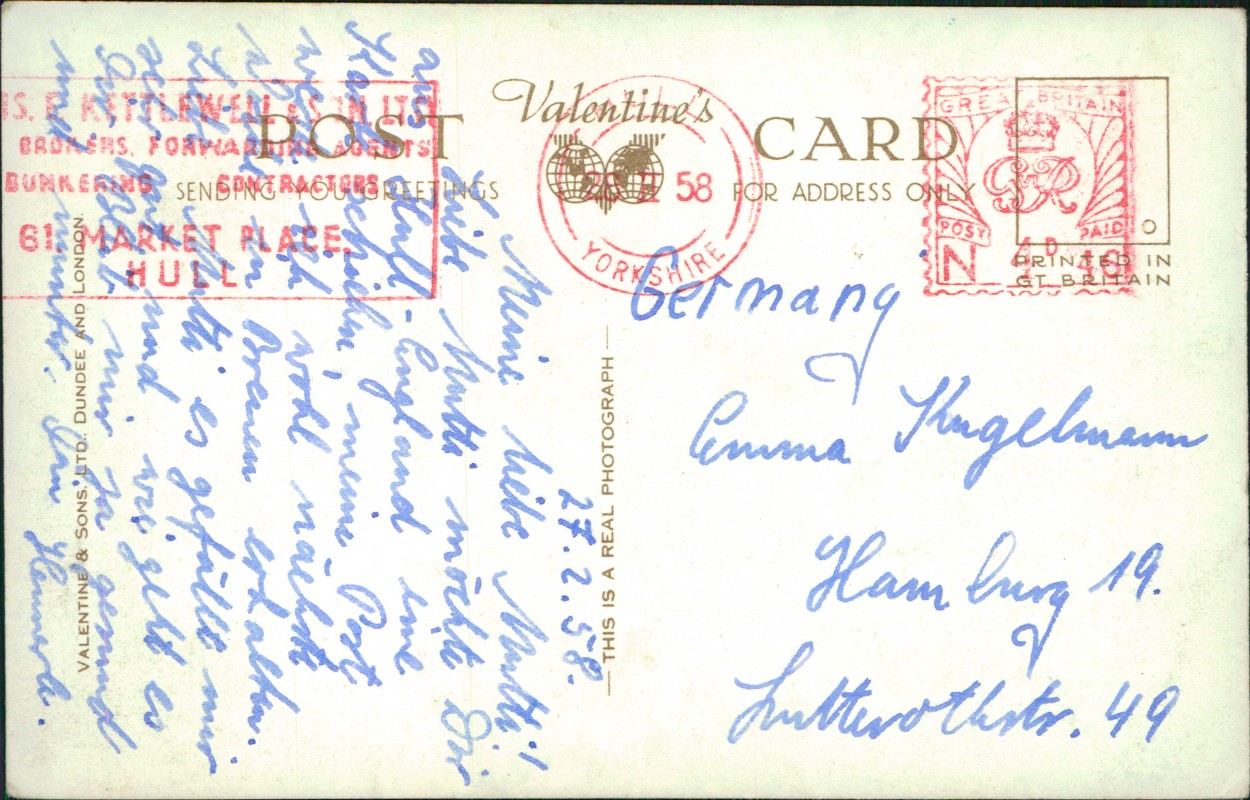 Valentine's
POST CARD
SENDING YOUR GREETINGS
FOR ADDRESS ONLY
KETTLEWELL & SON. LTD
BROKERS, FORWARDING AGENTS
BUNKERING CONTRACTORS
61, MARKET PLACE,
HULL
58
YORKSHIRE
GREAT BRITAIN
GR
POST PAID
N
PRINTED IN
GT BRITAIN
27.2.58.
Meine liebe Mutti!
Liebe Mutti möchte Dir
aus Hull - England eine
Karte meine Post
werde ich wohl nächste
in Bremen erhalten.
Liebe Mutti es gefällt mir
sehr gut und wie geht es
Dir. mir ja gesund
und munter. Dein
THIS IS A REAL PHOTOGRAPH
VALENTINE & SONS, LTD. DUNDEE AND LONDON.
Germany
Emma Kugelmann
Hamburg 19.
Lutterothstr. 49